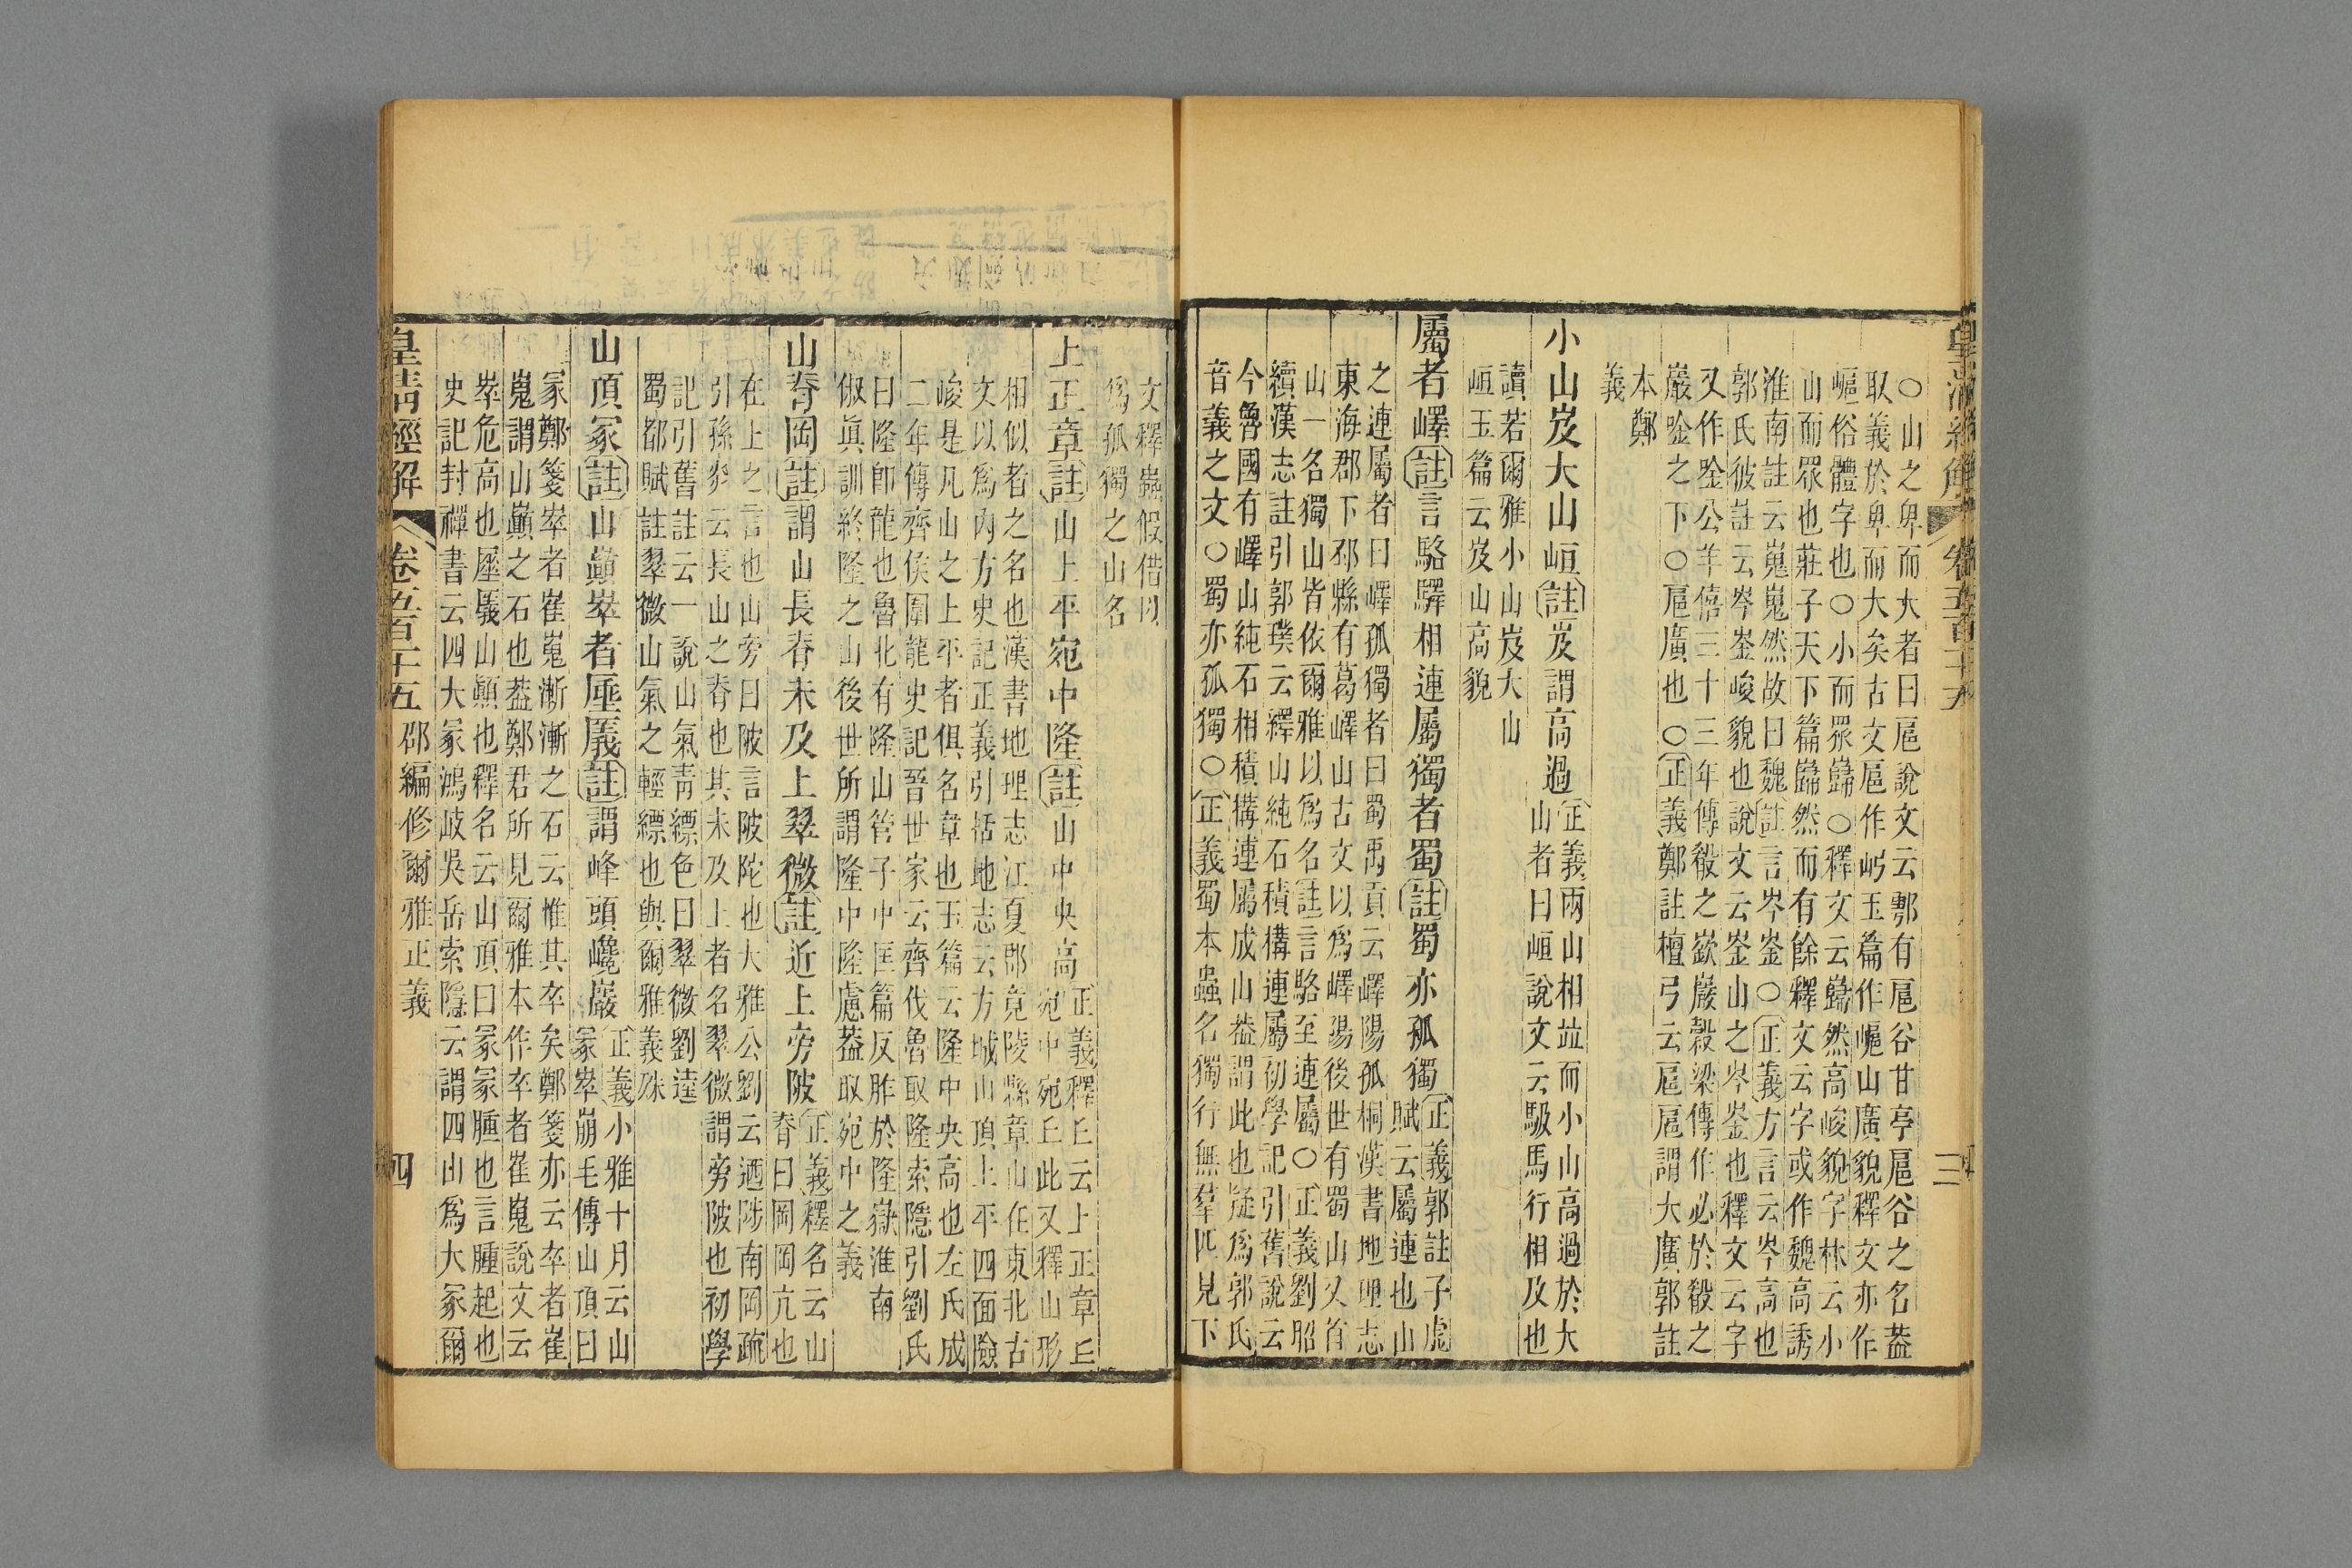 ○山之卑而大者曰扈說文云鄠有扈谷甘亭扈谷之名葢
取義於卑而大矣古文扈作㞿玉篇作嶇山廣貌釋文亦作
嶇俗體字也○小而眾巋○釋文云巋然高峻貌字林云小
山而眾也莊子天下篇巋然而有餘釋文云字或作魏高誘
淮南註云嵬嵬然故曰魏註言岑崟○正義方言云岑高也
郭氏彼註云岑崟峻貌也說文云崟山之岑崟也釋文云字
又作唫公羊僖三十三年傳殽之嶔巖榖梁傳作必於殽之
巖唫之下○扈廣也○正義鄭註檀弓云扈扈謂大廣郭註
本鄭
義
小山岌大山峘註岌謂高過正義兩山相竝而小山高過於大
山者曰峘說文云馺馬行相及也
讀若爾雅小山岌大山
峘玉篇云岌山高貌
屬者嶧註言駱驛相連屬獨者蜀註蜀亦孤獨正義郭註子虛
賦云屬連也山
之連屬者曰嶧孤獨者曰蜀禹貢云嶧陽孤桐漢書地理志
東海郡下邳縣有葛嶧山古文以爲嶧陽後世有蜀山又首
山一名獨山皆依爾雅以爲名註言駱至連屬○正義劉昭
續漢志註引郭璞云繹山純石積構連屬初學記引舊說云
今魯國有嶧山純石相積構連屬成山葢謂此也疑爲郭氏
音義之文○蜀亦孤獨○正義蜀本蟲名獨行無羣匹見下
皇清經解
卷五百二十五
三
文釋蟲假借以
爲孤獨之山名
上正章註山上平宛中隆註山中央高正義釋丘云上正章丘
宛中宛丘此又釋山形
相似者之名也漢書地理志江夏郡竟陵縣章山在東北古
文以爲內方史記正義引括地志云方城山頂上平四面險
峻是凡山之上平者俱名章也玉篇云隆中央高也左氏成
二年傳齊侯圍龍史記晉世家云齊伐魯取隆索隱引劉氏
曰隆卽龍也魯北有隆山管子中匡篇反胙於隆嶽淮南
俶眞訓終隆之山後世所謂隆中隆慮葢取宛中之義
山脊岡註謂山長脊未及上翠微註近上旁陂正義釋名云山
脊曰岡岡亢也
在上之言也山旁曰陂言陂陀也大雅公劉云迺陟南岡疏
引孫炎云長山之脊也其未及上者名翠微謂旁陂也初學
記引舊註云一說山氣靑縹色曰翠微劉逵
蜀都賦註翠微山氣之輕縹也與爾雅義殊
山頂冢註山巔崒者厜㕒註謂峰頭巉巖正義小雅十月云山
冢崒崩毛傳山頂曰
冢鄭箋崒者崔嵬漸漸之石云惟其卒矣鄭箋亦云卒者崔
嵬謂山巔之石也葢鄭君所見爾雅本作卒者崔嵬說文云
崒危高也厜㕒山顚也釋名云山頂曰冢冢腫也言腫起也
史記封禪書云四大冢鴻岐吳岳索隱云謂四山爲大冢爾
皇清經解
卷五百二十五
邵編修爾雅正義
四